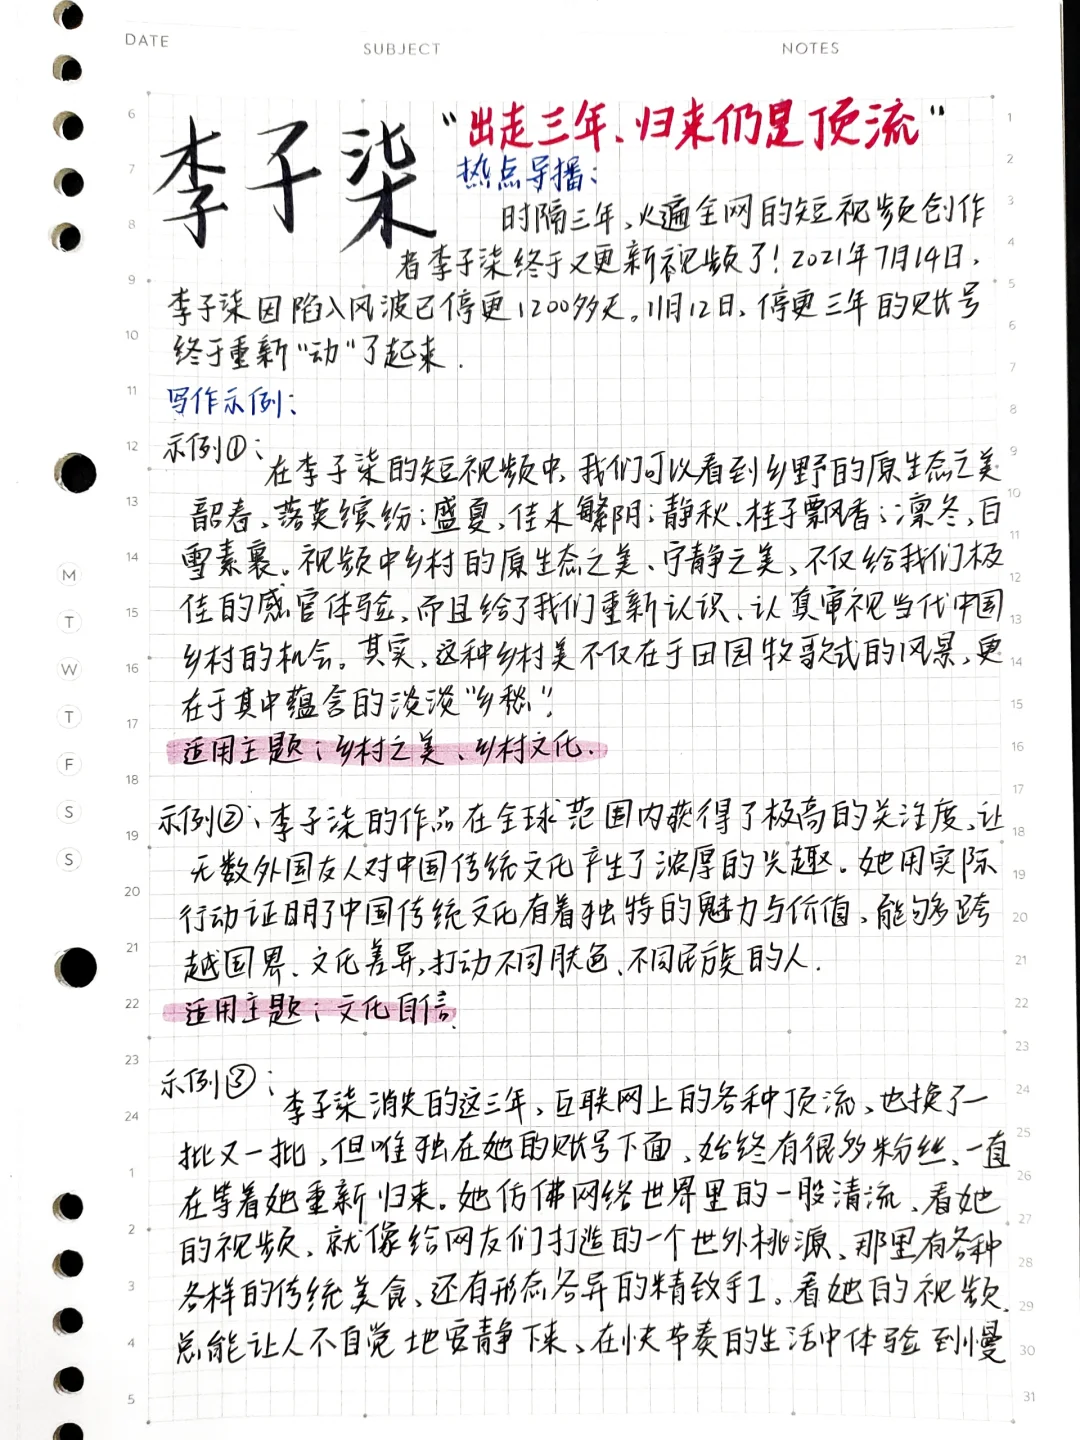 DATE
SUBJECT
NOTES
李子柒
"出走三年、归来仍是顶流"
热点导播：
时隔三年、火遍全网的短视频创作
者李子柒终于又更新视频了！2021年7月14日，
李子柒因陷入风波已停更1200多天。11月12日，停更三年的账号
终于重新"动"了起来．
写作示例：
示例①：
在李子柒的短视频中，我们可以看到乡野的原生态之美
韶春、落英缤纷；盛夏，佳木繁阴；静秋、桂子飘香；凛冬，白
雪素裹。视频中乡村的原生态之美、宁静之美、不仅给我们极
佳的感官体验，而且给了我们重新认识、认真审视当代中国
乡村的机会。其实，这种乡村美不仅在于田园牧歌式的风景，更
在于其中蕴含的淡淡"乡愁"。
适用主题：乡村之美、乡村文化．
示例②：李子柒的作品在全球范围内获得了极高的关注度，让
无数外国友人对中国传统文化产生了浓厚的兴趣。她用实际
行动证明了中国传统文化有着独特的魅力与价值，能够跨
越国界、文化差异，打动不同肤色、不同民族的人．
适用主题：文化自信．
示例③：
李子柒消失的这三年，互联网上的各种顶流，也换了一
批又一批，但唯独在她的账号下面、始终有很多粉丝、一直
在等着她重新归来。她仿佛网络世界里的一股清流、看她
的视频、就像给网友们打造的一个世外桃源、那里有各种
各样的传统美食、还有形态各异的精致手工。看她的视频，
总能让人不自觉地安静下来、在快节奏的生活中体验到慢
6
7
8
9
10
11
12
13
14
15
16
17
18
19
20
21
22
23
24
1
2
3
4
5
M
T
W
T
F
S
S
1
2
3
4
5
6
7
8
9
10
11
12
13
14
15
16
17
18
19
20
21
22
23
24
25
26
27
28
29
30
31